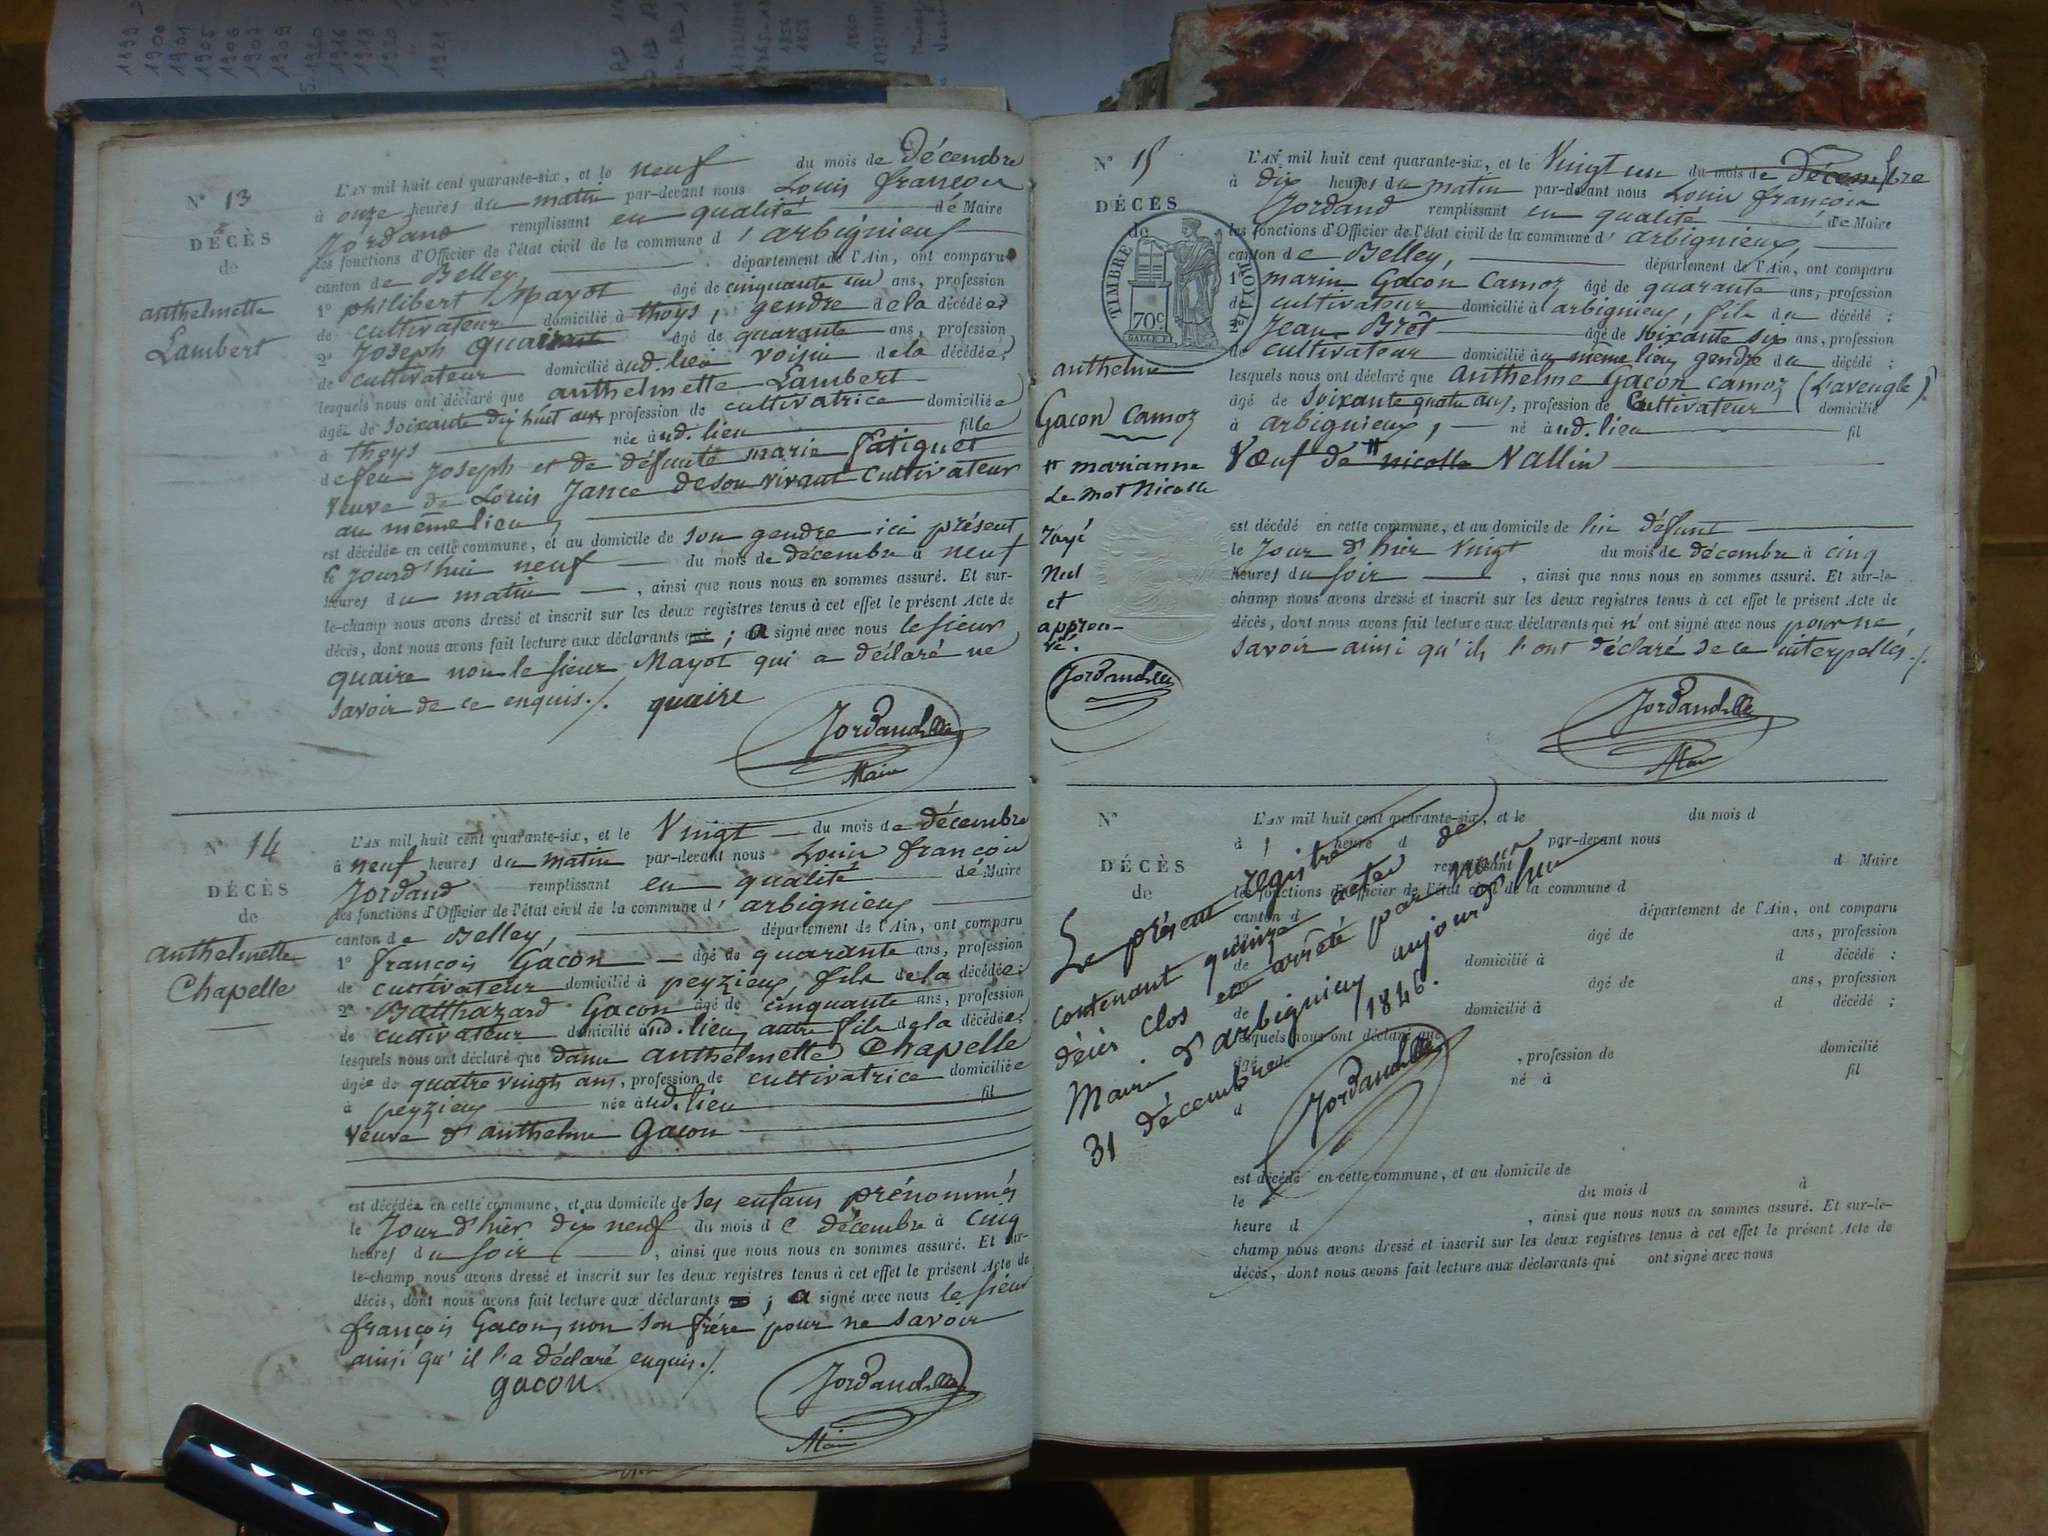 1899
1900
1901
1905
1906
1907
1909
1916
1918
1920
1921
N° 13
DÉCÈS
de
anthelmette
Lambert
L'AN mil huit cent quarante-six, et le neuf du mois de décembre
à onze heures du matin par-devant nous Louis françois
Jordand remplissant en qualité de Maire
les fonctions d'Officier de l'état civil de la commune d'arbignieux
canton de Belley, département de l'Ain, ont comparu
1° philibert Mayot âgé de cinquante un ans, profession
de cultivateur domicilié à thoys, gendre de la décédée;
2° Joseph quaire âgé de quarante ans, profession
de cultivateur domicilié à ud. lieu voisin de la décédée;
lesquels nous ont déclaré que anthelmette Lambert
âgée de soixante dix huit ans profession de cultivatrice domiciliée
à thoys née à ud. lieu fille
de feu Joseph et de défunte marie fatiguet
veuve de Louis Jance de son vivant cultivateur
au même lieu,
est décédée en cette commune, et au domicile de son gendre ici présent
le Jourd'hui neuf du mois de décembre à neuf
heures du matin, ainsi que nous nous en sommes assuré. Et sur-
le-champ nous avons dressé et inscrit sur les deux registres tenus à cet effet le présent Acte de
décès, dont nous avons fait lecture aux déclarants qui; a signé avec nous le sieur
quaire non le sieur Mayot qui a déclaré ne
savoir de ce enquis./. quaire
Jordand
Maire
N° 14
DÉCÈS
de
anthelmette
Chapelle
L'AN mil huit cent quarante-six, et le Vingt du mois de décembre
à neuf heures du matin par-devant nous Louis françois
Jordand remplissant en qualité de Maire
les fonctions d'Officier de l'état civil de la commune d'arbignieux
canton de Belley, département de l'Ain, ont comparu
1° françois Gacon âgé de quarante ans, profession
de cultivateur domicilié à peyzieux, fils de la décédée;
2° Balthazard Gacon âgé de cinquante ans, profession
de cultivateur domicilié à ud. lieu, autre fils de la décédée;
lesquels nous ont déclaré que dame anthelmette Chapelle
âgée de quatre vingts ans, profession de cultivatrice domiciliée
à peyzieux née à ud. lieu fil
Veuve d'anthelme Gacon
est décédée en cette commune, et au domicile de ses enfans prénommés
le Jour d'hier dix neuf du mois de décembre à cinq
heures du soir, ainsi que nous nous en sommes assuré. Et sur-
le-champ nous avons dressé et inscrit sur les deux registres tenus à cet effet le présent Acte de
décès, dont nous avons fait lecture aux déclarants; a signé avec nous le sieur
françois Gacon, non son frère pour ne savoir
ainsi qu'il l'a déclaré enquis./.
gacon
Jordand
Maire
N° 15
DÉCÈS
de
TIMBRE ROYAL
70c
anthelme
Gacon Camoz
# marianne
Le mot Nicolle
rayé
Nul
et
approu-
vé.
Jordand
L'AN mil huit cent quarante-six, et le Vingt un du mois de décembre
à dix heures du matin par-devant nous Louis françois
Jordand remplissant en qualité de Maire
les fonctions d'Officier de l'état civil de la commune d'arbignieux,
canton de Belley, département de l'Ain, ont comparu
1° marin Gacon Camoz âgé de quarante ans, profession
de cultivateur domicilié à arbignieux, fils du décédé;
2° Jean Brôt âgé de soixante six ans, profession
de cultivateur domicilié au même lieu, gendre du décédé;
lesquels nous ont déclaré que anthelme Gacon camoz (L'aveugle)
âgé de soixante quatre ans, profession de Cultivateur domicilié
à arbignieux, né à ud. lieu fil
Vœuf de # nicolle Vallin
est décédé en cette commune, et au domicile de lui défunt
le Jour d'hier Vingt du mois de décembre à cinq
heures du soir, ainsi que nous nous en sommes assuré. Et sur-le-
champ nous avons dressé et inscrit sur les deux registres tenus à cet effet le présent Acte de
décès, dont nous avons fait lecture aux déclarants qui n'ont signé avec nous pour ne
savoir ainsi qu'ils l'ont déclaré de ce interpellés./.
Jordand
Maire
N°
DÉCÈS
de
L'AN mil huit cent quarante-six, et le du mois d
à heure d par-devant nous
remplissant d Maire
les fonctions d'Officier de l'état civil de la commune d
canton d département de l'Ain, ont comparu
âgé de ans, profession
de domicilié à d décédé :
âgé de ans, profession
de domicilié à d décédé ;
lesquels nous ont déclaré que
âgé de , profession de domicilié
né à fil
d
Le présent registre
contenant quinze actes de
décès clos et arrêté par nous
Maire d'arbignieux aujourd'hui
31 décembre 1846.
Jordand
est décédé en cette commune, et au domicile de
le du mois d à
heure d , ainsi que nous nous en sommes assuré. Et sur-le-
champ nous avons dressé et inscrit sur les deux registres tenus à cet effet le présent Acte de
décès, dont nous avons fait lecture aux déclarants qui ont signé avec nous